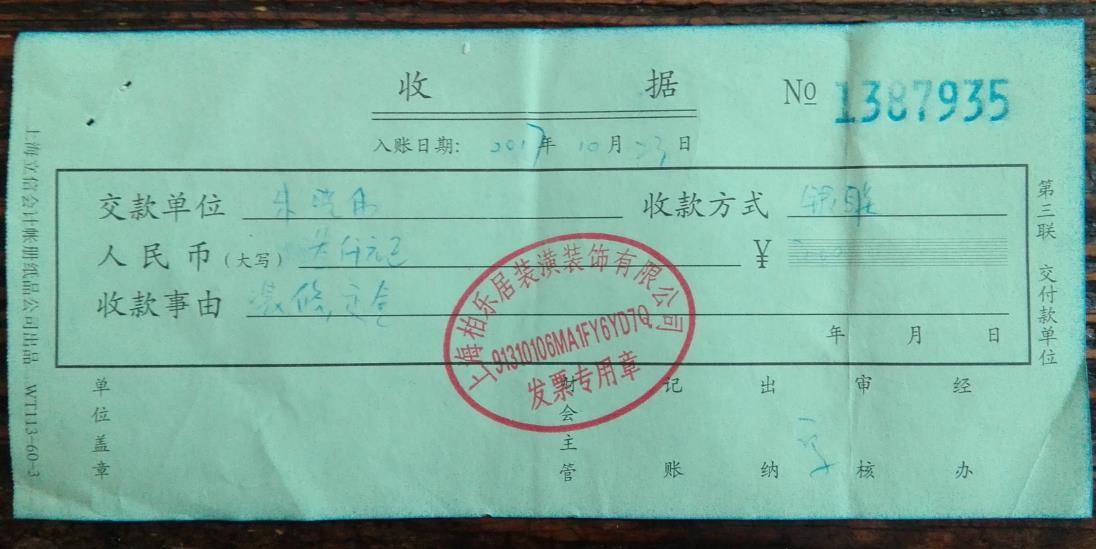 收据
№ 1387935
入账日期: 2017年10月23日
交款单位 收款方式 银联
人民币(大写) 仟元正 ¥
收款事由 装修定金
年 月 日
上海柏乐居装潢装饰有限公司
91310106MA1FY6YD7Q
发票专用章
单位盖章 财会主管 记账 出纳 审核 经办
第三联 交付款单位
上海立信会计帐册纸品公司出品 WT113-60-3